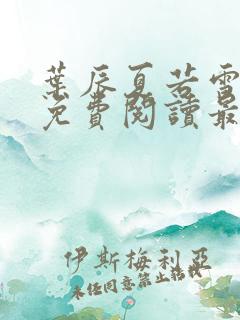 葉辰夏若雪
免費閱讀最
伊斯梅利亞
未經同意禁止搭訕